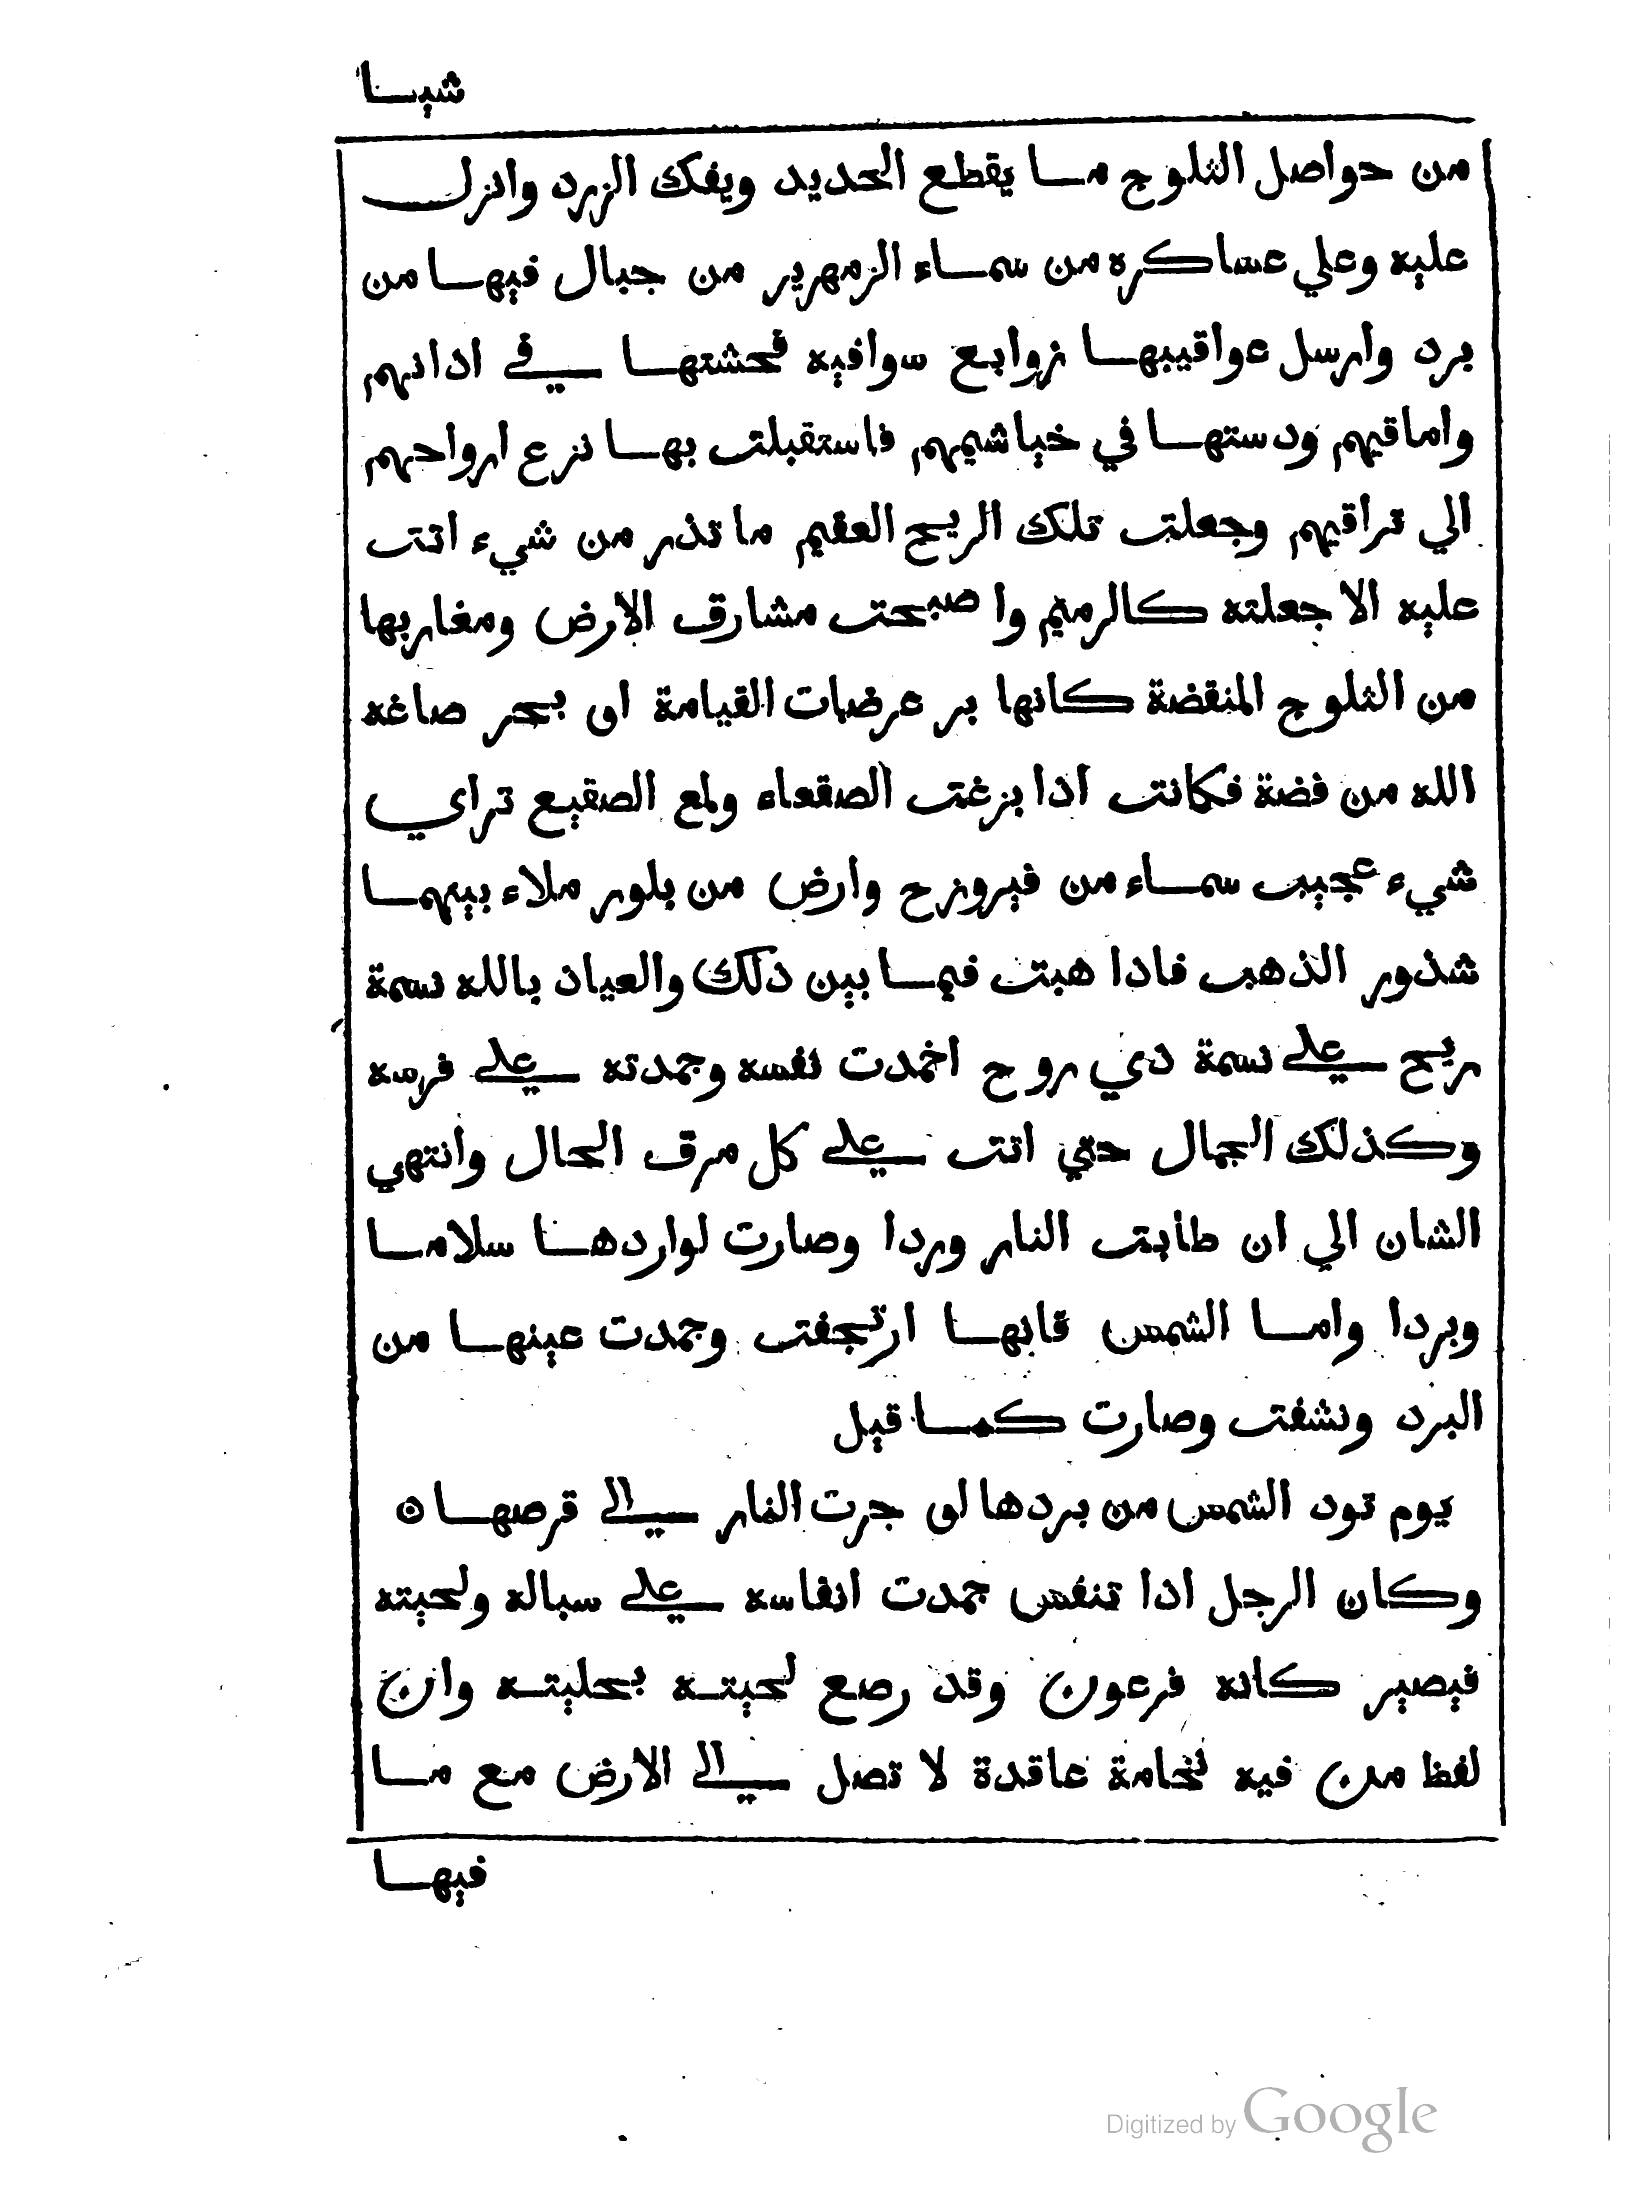 شيـا
من حواصل الثلوج ما يقطع الحديد ويفك الزرد وانزل
عليه وعلي عساكره من سماء الزمهرير من جبال فيها من
برد وارسل عواقيبها زوابع سوافيه فحشتها في اذانهم
واماقيهم ودستها في خياشيمهم فاستقبلت بها نزع ارواحهم
الي تراقيهم وجعلت تلك الريح العقيم ما تذر من شيء اتت
عليه الا جعلته كالرميم واصبحت مشارق الارض ومغاربها
من الثلوج المنقضة كانها بر عرضات القيامة او بحر صاغه
الله من فضة فكانت اذا بزغت الصقعاء ولمع الصقيع تراي
شيء عجيب سماء من فيروزح وارض من بلور ملاء بينهما
شذور الذهب فاذا هبت فيما بين ذلك والعياذ بالله نسمة
ريح علي نسمة ذي روح اخمدت نفسه وجمدته علي فرسه
وكذلك الجمال حتي اتت علي كل مرق الحال وانتهي
الشان الي ان طابت النار وردا وصارت لواردها سلاما
وبردا واما الشمس فانها ارتجفت وجمدت عينها من
البرد ونشفت وصارت كما قيل
يوم تود الشمس من بردها لو جرت النار الي قرصها ٥
وكان الرجل اذا تنفس جمدت انفاسه علي سباله ولحيته
فيصير كانه فرعون وقد رصع لحيته بحليته وان
لفظ من فيه نخامة عاقدة لا تصل الي الارض مع ما
فيها
Digitized by Google